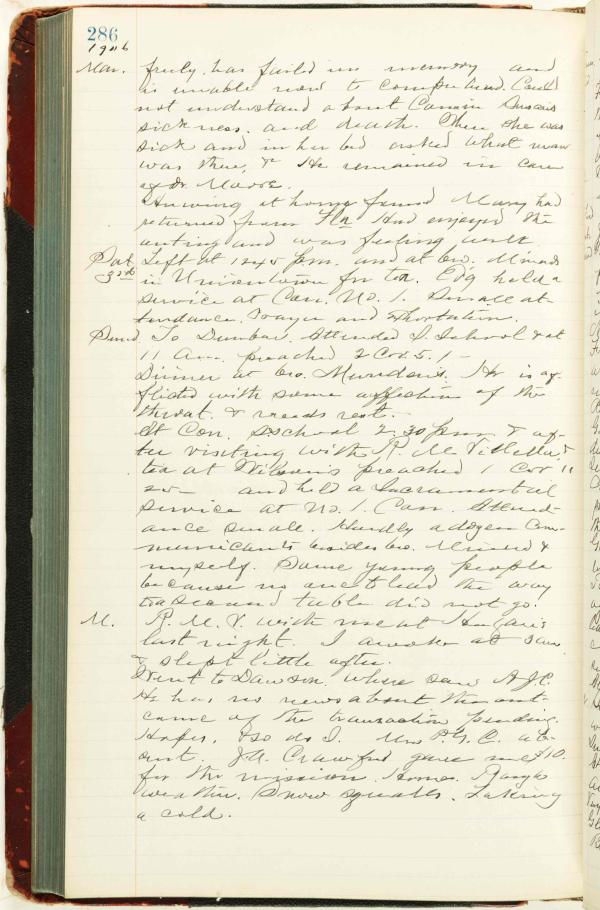 286
1906
Mar. has failed in memory and
is unable now to comprehend. Could
not understand about Cousin
sickness. and death. When she was
sick and in her bed asked what man
was there, & He remained in care
of Dr. Moore.
Arriving at home found Mary had
returned from Fla. Had enjoyed the
outing and was feeling well.
Sat. Left at 1245 p.m. and at bro.
3rd in Uniontown for tea. Ev'g held a
service at Con. No. 1. Small at-
tendance. Prayer and Exhortation.
Sund. To Dunbar. Attended S. School & at
11 A.m. preached 2 Cor. 5.1-
Dinner at bro. He is af-
flicted with some affection of the
throat. & needs rest.
At Con. S School 2.30 p.m. & af-
ter visiting with R. M. &
tea at Wilson's preached 1 Cor 11
and held a Sacramental
service at No. 1. Con. Attend-
ance small. Hardly a dozen Com-
municants besides bro. &
myself. Some young people
because no one to lead the way
to second table did not go.
M. R. M. V. with me at
last night. I awoke at
& slept little after.
Went to Dawson. where saw A.J.C.
He has no news about the out-
come of the transaction pending.
Hopes, & so do I. Mrs. P.G.C. ab-
sent. J.H. Crawford gave me $10.
for the mission. Home. Rough
weather. Snow squalls. Taking
a cold.